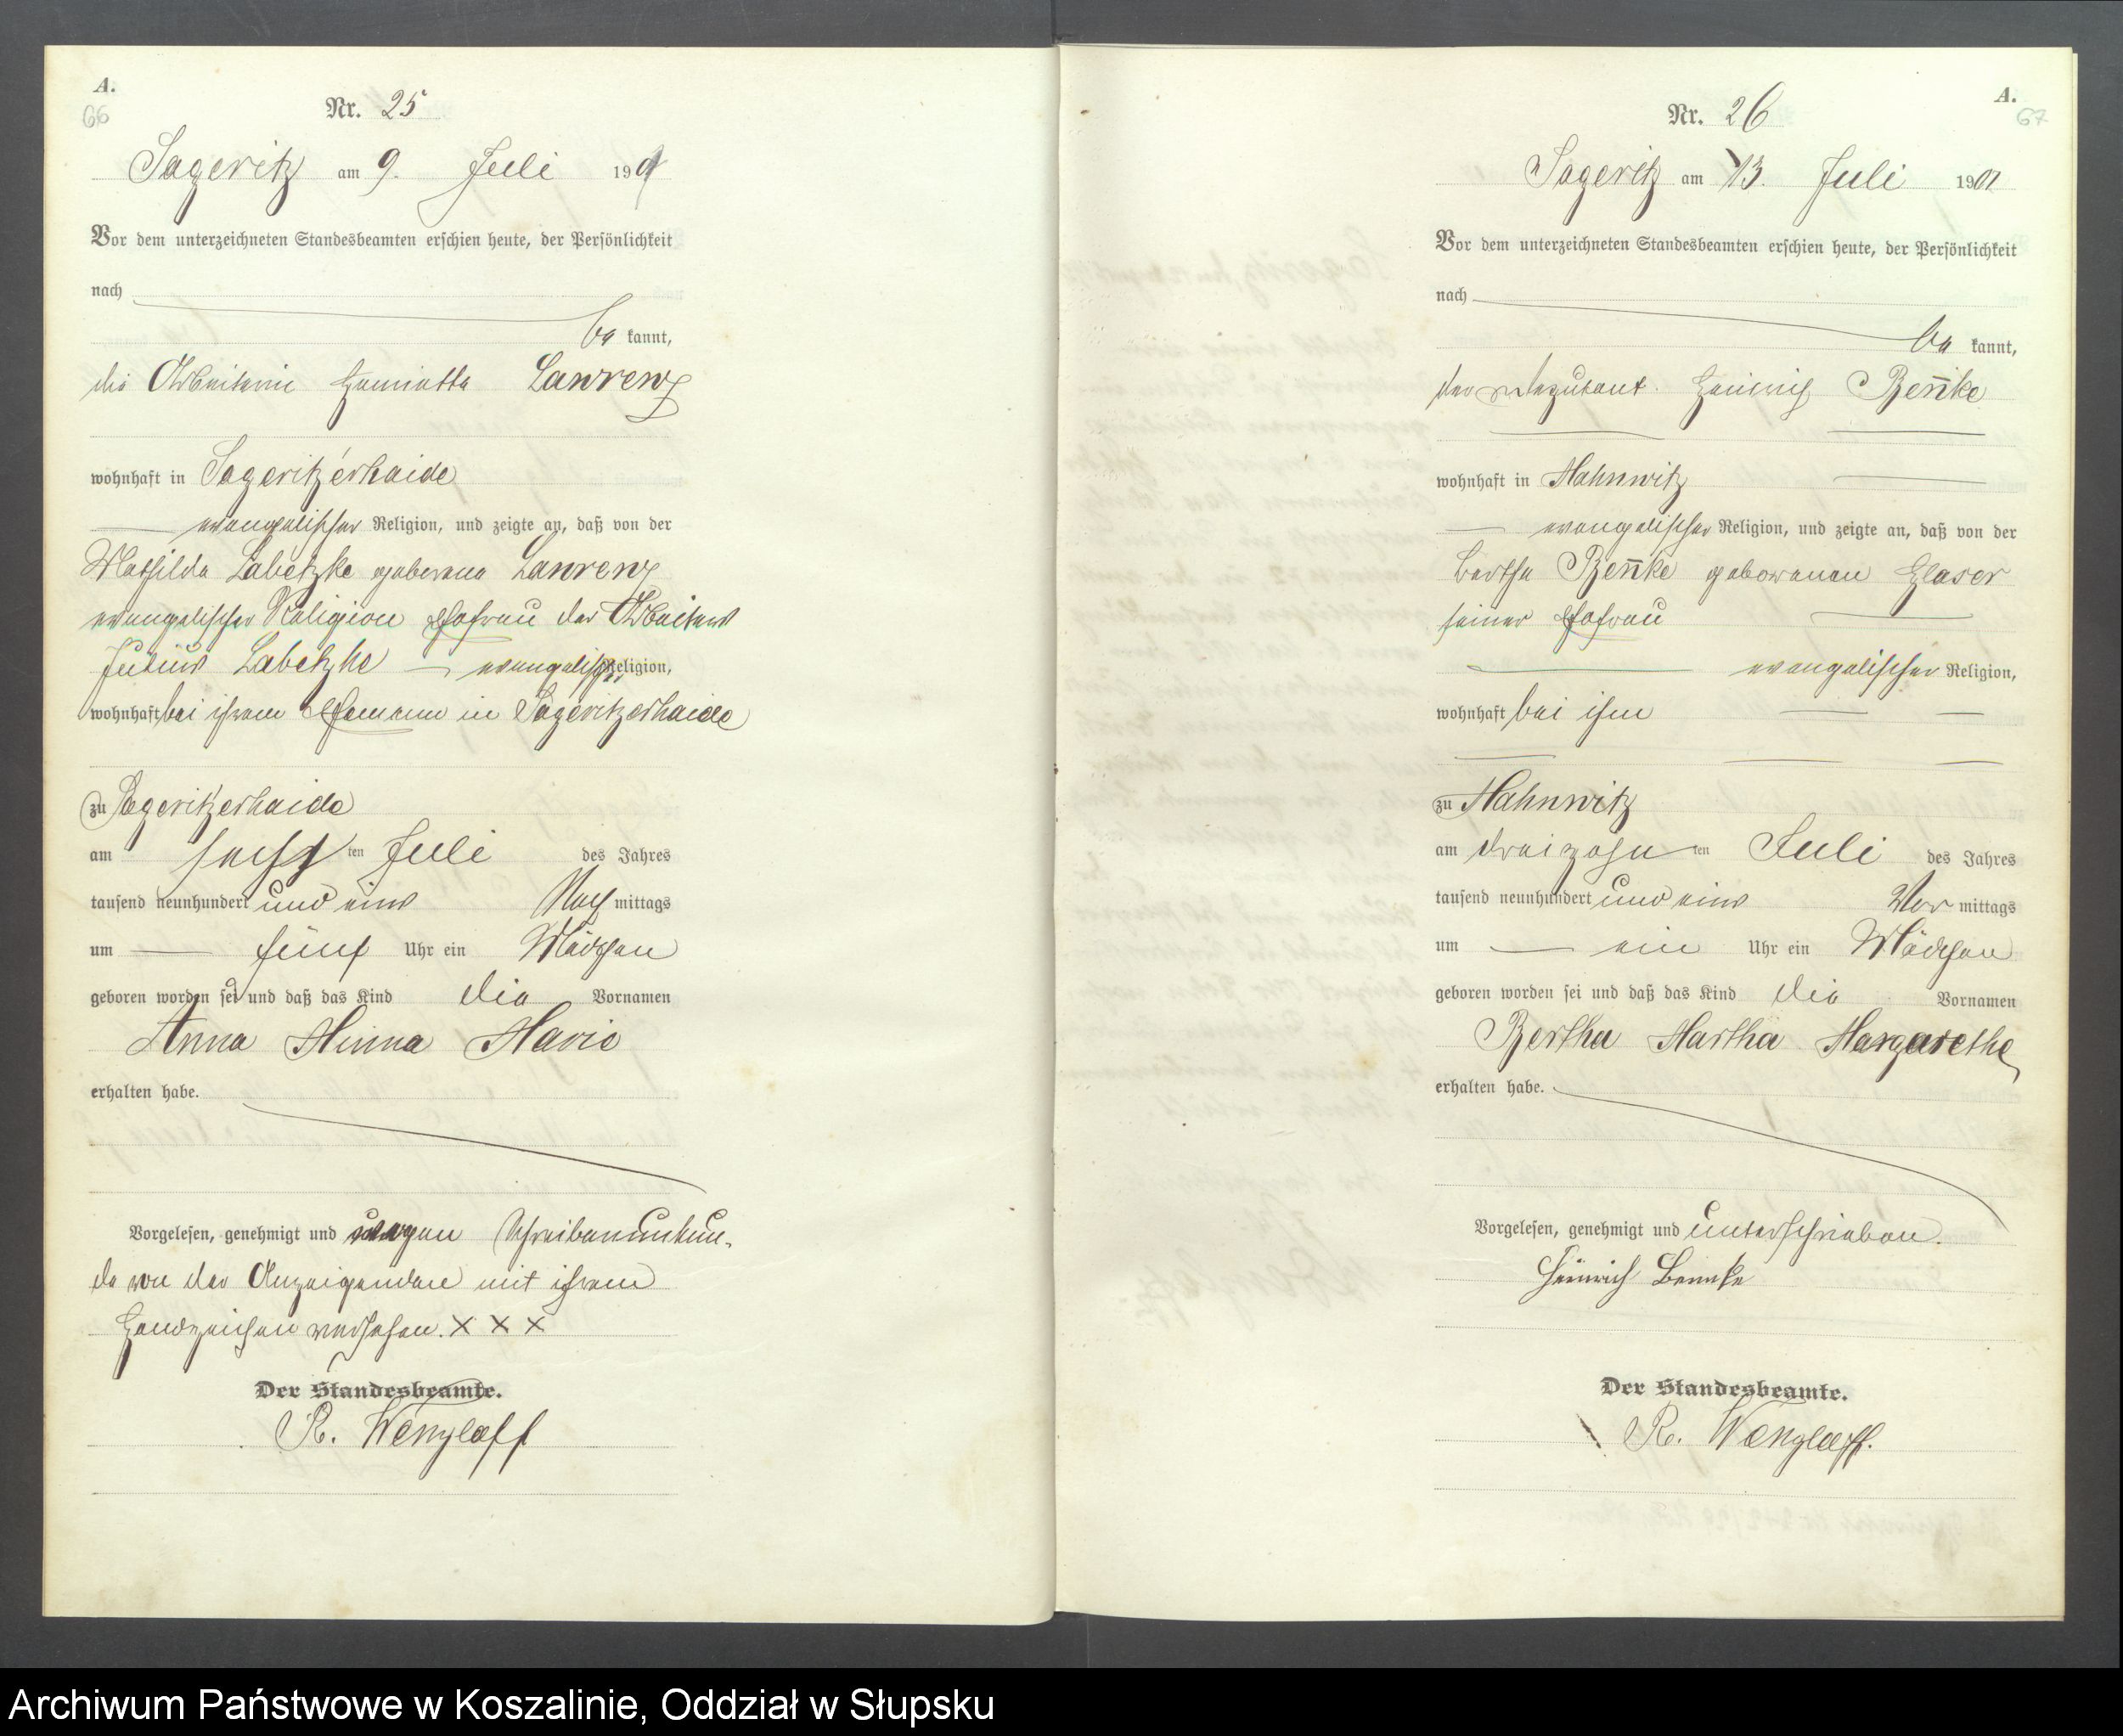 A.
66
Nr. 25
Sageritz am 9. Juli 1901
Vor dem unterzeichneten Standesbeamten erschien heute, der Persönlichkeit
nach
be kannt,
die Arbeiterin Henriette Lawrenz
wohnhaft in Sageritzerhaide
evangelischer Religion, und zeigte an, daß von der
Mathilde Labetzke geborene Lawrenz
evangelischer Religion Ehefrau des Arbeiters
Julius Labetzke — evangelischer Religion,
wohnhaft bei ihrem Ehemann in Sageritzerhaide
zu Sageritzerhaide
am sechs ten Juli des Jahres
tausend neunhundert und eins Nach mittags
um — fünf Uhr ein Mädchen
geboren worden sei und daß das Kind die Vornamen
Anna Minna Marie
erhalten habe.
Vorgelesen, genehmigt und wegen Schreibensunkun-
de von der Anzeigenden mit ihrem
Handzeichen versehen. X X X
Der Standesbeamte.
R. Wenzlaff
A.
67
Nr. 26
Sageritz am 13. Juli 1901
Vor dem unterzeichneten Standesbeamten erschien heute, der Persönlichkeit
nach
be kannt,
der Deputant Heinrich Ben̄ke
wohnhaft in Mahnwitz
evangelischer Religion, und zeigte an, daß von der
Bertha Ben̄ke geborenen Glaser
seiner Ehefrau
evangelischer Religion,
wohnhaft bei ihm
zu Mahnwitz
am dreizehn ten Juli des Jahres
tausend neunhundert und eins Vor mittags
um — ein Uhr ein Mädchen
geboren worden sei und daß das Kind die Vornamen
Bertha Martha Margarethe
erhalten habe.
Vorgelesen, genehmigt und unterschrieben.
Heinrich Bennke
Der Standesbeamte.
R. Wenzlaff.
Archiwum Państwowe w Koszalinie, Oddział w Słupsku